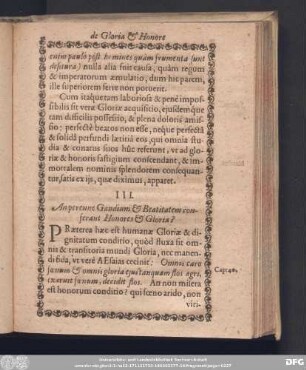 de Gloria & Honore
enim paulò pòst homines quàm frumenta sunt
defutura) nulla alia fuit causa, quàm regum
& imperatorum æmulatio, dum hic parem,
ille superiorem ferre non poterit.
Cum itaque tam laboriosa & penè impos-
sibilis sit veræ Gloriæ acquisitio, ejusdemque
tam difficilis possessio, & plena doloris amis-
sio: perfectè beatos non esse, neque perfectâ
& solidâ perfundi lætitiâ eos, qui omnia stu-
dia & conatus suos hûc referunt, ut ad glo-
riæ & honoris fastigium conscendant, & im-
mortalem nominis splendorem consequan-
tur, satis ex ijs, quæ diximus, apparet.
III.
An præsens Gaudium & Beatitatem con-
ferant Honores & Gloria?
PRæterea hæc est humanæ Gloriæ & di-
gnitatum conditio, quòd fluxa sit om-
nis & transitoria mundi Gloria, nec manen-
di fida, ut verè Esaias cecinit: Omnis caro
fœnum & omnis gloria ejus tanquam flos agri,
exaruit fœnum, decidit flos. An non misera
est honorum conditio? qui fœno arido, non
viri-
Cap: 40.